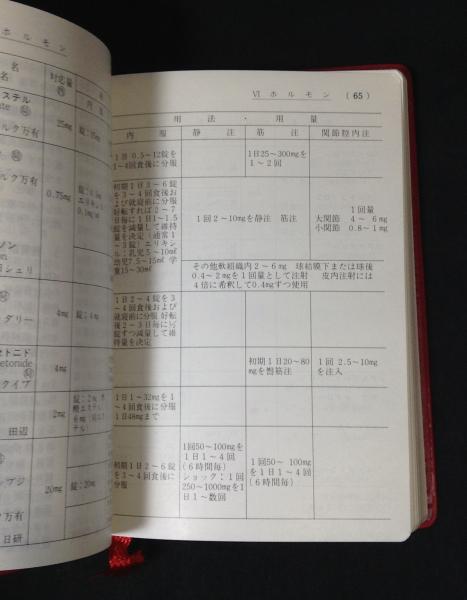 ホルモン
名
名
対応量
内
ステル
ate
ルク万有
25mg
ルク万有
0.75mg
ソン
on
ヨシェリ
4mg
錠:4mg
ダリー
セトニド
etonide
4mg
クイブ
2mg
田辺
ルブジ
20mg
錠:20mg
万有
日研
VI ホルモン (65)
用法・用量
内服
静注
筋注
関節腔内注
1回0.5〜12錠を
1〜4回食後に分服
1日25〜300mgを
1〜2回
初期1日3〜6錠
を3〜4回食後お
よび就寝前に分服
好転すれば2〜7
日毎に1日1〜1.5
錠を減量して維持
量を決定(通常1
〜3錠)エリキシ
ル:乳児5〜10ml
幼児7.5〜15ml 学
童15〜30ml
1回2〜10mgを静注 筋注
1回量
大関節 4〜6mg
小関節 0.8〜1mg
その他軟組織内2〜6mg 球結膜下または球後
0.4〜2mgを1回量として注射 皮内注射には
4倍に希釈して0.4mgずつ使用
1日2〜4錠を3
〜4回食後および
就寝前に分服 好転
後2〜3日毎に½
錠ずつ減量して維
持量を決定
初期1日20〜80
mgを臀筋注
1回2.5〜10mg
を注入
1日1〜32mgを1
〜4回食後に分服
1日48mgまで
初期1日2〜6錠
を3〜4回食後に
分服
1回50〜100mgを
1日1〜4回
(6時間毎)
ショック:1回
250〜1000mgを1
日1〜数回
1回50〜100mg
を1日1〜4回
(6時間毎)